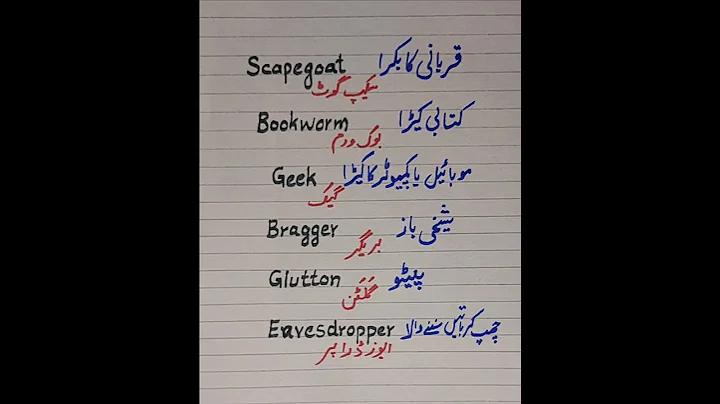 Scapegoat قربانی کا بکرا
سکیپ گوٹ
Bookworm کتابی کیڑا
بوک ورم
Geek موبائیل یا کمپیوٹر کا کیڑا
گیک
Bragger شیخی باز
بریگر
Glutton پیٹو
گلٹن
Eavesdropper چھپ کر باتیں سننے والا
ایوز ڈراپر